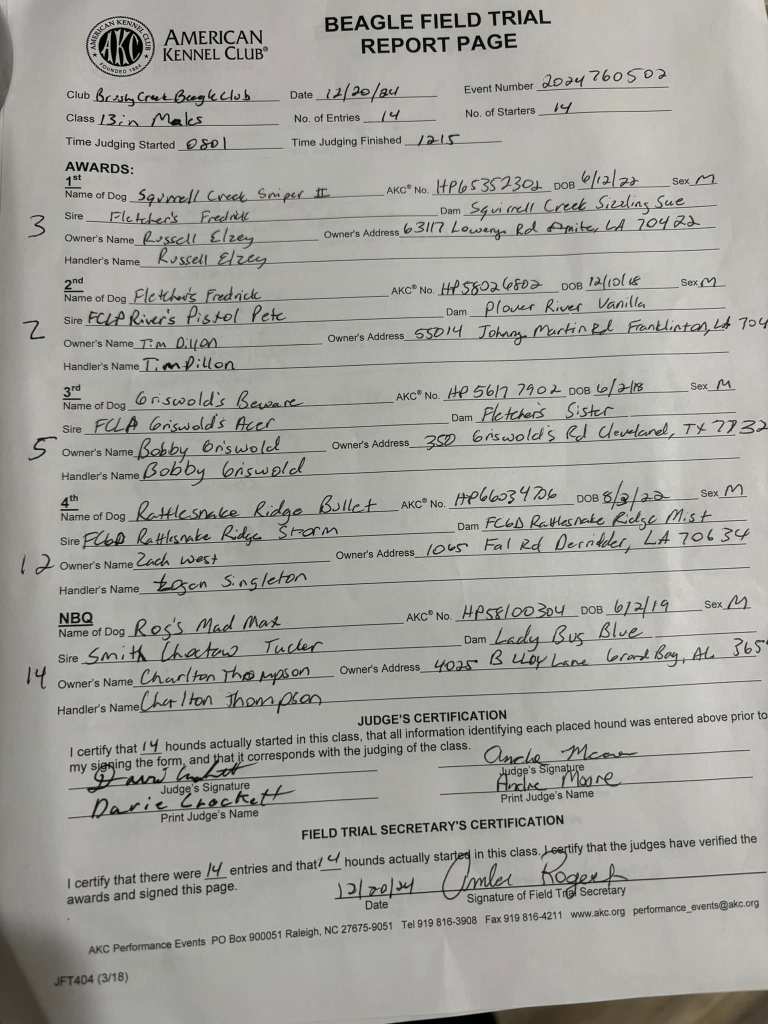 AMERICAN KENNEL CLUB
AKC
FOUNDED 1884
AMERICAN
KENNEL CLUB®
BEAGLE FIELD TRIAL
REPORT PAGE
Club Brushy Creek Beagle Club Date 12/20/24 Event Number 2024760502
Class 13in Males No. of Entries 14 No. of Starters 14
Time Judging Started 0801 Time Judging Finished 1215
AWARDS:
1st
Name of Dog Squirrell Creek Sniper II AKC® No. HP65352302 DOB 6/12/22 Sex M
3
Sire Fletcher's Fredrick Dam Squirrell Creek Sizzling Sue
Owner's Name Russell Elzey Owner's Address 63117 Lowery Rd Amite, LA 70422
Handler's Name Russell Elzey
2nd
Name of Dog Fletcher's Fredrick AKC® No. HP58026802 DOB 12/10/18 Sex M
2
Sire FCLP River's Pistol Pete Dam Plover River Vanilla
Owner's Name Tim Dillon Owner's Address 55014 Johnny Martin Rd Franklinton, LA 704
Handler's Name Tim Dillon
3rd
Name of Dog Griswold's Beware AKC® No. HP56177902 DOB 6/2/18 Sex M
Sire Griswold's Acer Dam Fletcher's Sister
5
Owner's Name Bobby Griswold Owner's Address 350 Griswold's Rd Cleveland, TX
Handler's Name Bobby Griswold
4th
Name of Dog Rattlesnake Ridge Bullet AKC® No. HP66034706 DOB Sex M
Sire FCGD Rattlesnake Ridge Storm Dam FCGD Rattlesnake Ridge Mist
12
Owner's Name Zach West Owner's Address 1065 Fal Rd Derridder, LA 70634
Handler's Name Logan Singleton
NBQ
Name of Dog Rog's Mad Max AKC® No. HP58100304 DOB 6/2/19 Sex M
Sire Smith Choctaw Tucker Dam Lady Bug Blue
14
Owner's Name Charlton Thompson Owner's Address 4025 B Lane Grand Bay, AL 365
Handler's Name Charlton Thompson
JUDGE'S CERTIFICATION
I certify that 14 hounds actually started in this class, that all information identifying each placed hound was entered above prior to
my signing the form, and that it corresponds with the judging of the class.
Andre Moore
Judge's Signature Judge's Signature
Davie Crockett Andre Moore
Print Judge's Name Print Judge's Name
FIELD TRIAL SECRETARY'S CERTIFICATION
I certify that there were 14 entries and that 14 hounds actually started in this class, I certify that the judges have verified the
awards and signed this page.
12/20/24 Rogers
Date Signature of Field Trial Secretary
AKC Performance Events PO Box 900051 Raleigh, NC 27675-9051 Tel 919 816-3908 Fax 919 816-4211 www.akc.org performance_events@akc.org
JFT404 (3/18)